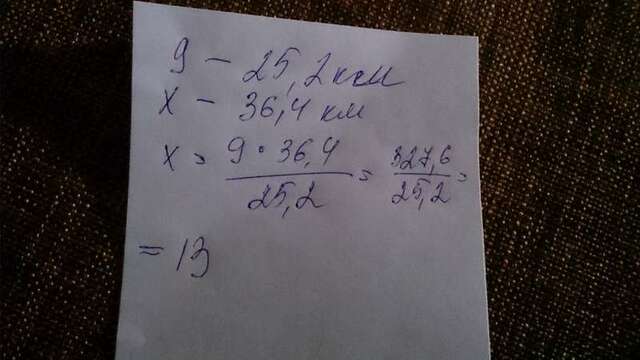 9 - 25,2 км
х - 36,4 км
х = 9 · 36,4 / 25,2 = 327,6 / 25,2 =
= 13